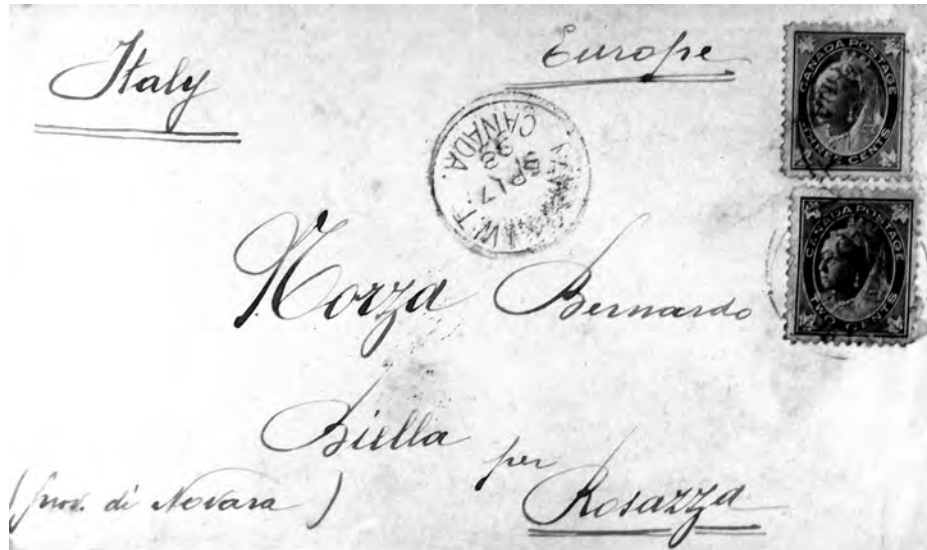 Italy
Europe
CANADA POSTAGE
THREE CENTS
CANADA POSTAGE
TWO CENTS
W.T.
SP 17
98
CANADA.
Bernardo
Biella
per
Rosazza
(prov. di Novara)